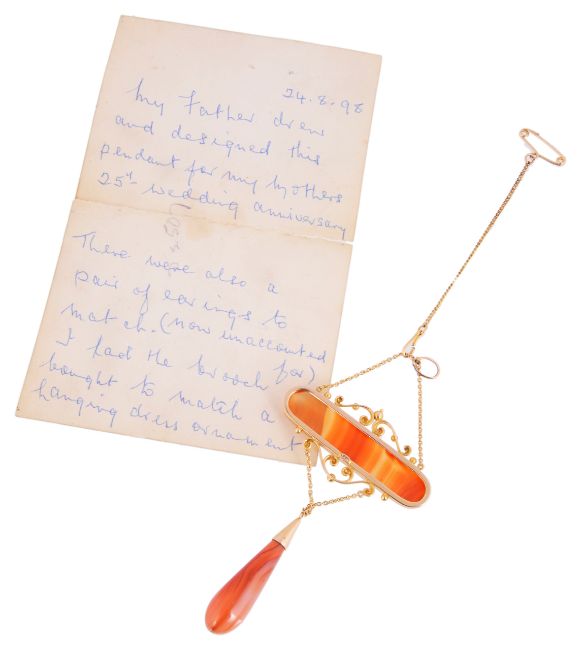 24.8.98
My Father drew
and designed this
pendant for my mothers
25th wedding anniversary
There were also a
pair of earings to
match. (now unaccounted
for)
I had the brooch
bought to match a
hanging dress ornament